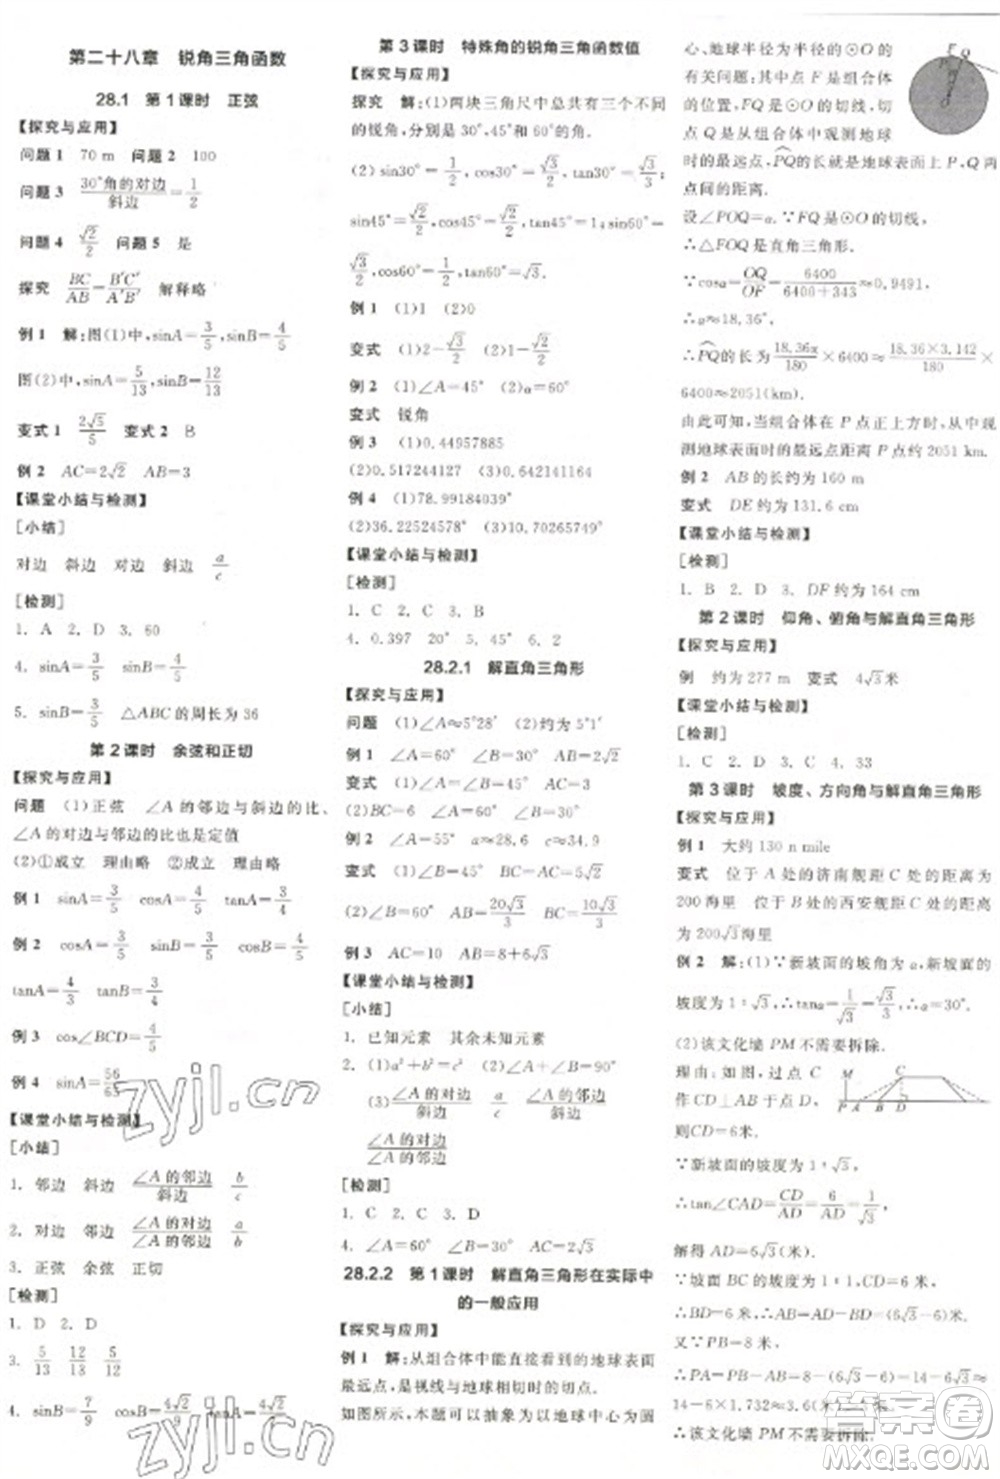 第二十八章 锐角三角函数
28.1 第1课时 正弦
【探究与应用】
问题1 70 m 问题2 100
问题3 30°角的对边/斜边=1/2
问题4 √2/2 问题5 是
探究 BC/AB=B′C′/A′B′ 解释略
例1 解:图(1)中,sinA=3/5,sinB=4/5
图(2)中,sinA=5/13,sinB=12/13
变式1 2√5/5 变式2 B
例2 AC=2√2 AB=3
【课堂小结与检测】
[小结]
对边 斜边 对边 斜边 a/c
[检测]
1. A 2. D 3. 60
4. sinA=3/5 sinB=4/5
5. sinB=3/5 △ABC的周长为36
第2课时 余弦和正切
【探究与应用】
问题 (1)正弦 ∠A的邻边与斜边的比、
∠A的对边与邻边的比也是定值
(2)①成立 理由略 ②成立 理由略
例1 sinA=3/5 cosA=4/5 tanA=3/4
例2 cosA=3/5 sinB=3/5 cosB=4/5
tanA=4/3 tanB=3/4
例3 cos∠BCD=4/5
例4 sinA=56/65
【课堂小结与检测】
[小结]
1. 邻边 斜边 ∠A的邻边/斜边 b/c
2. 对边 邻边 ∠A的对边/∠A的邻边 a/b
3. 正弦 余弦 正切
[检测]
1. D 2. D
3. 5/13 12/13 5/12
4. sinB=7/9 cosB=4√2/9
第3课时 特殊角的锐角三角函数值
【探究与应用】
探究 解:(1)两块三角尺中总共有三个不同
的锐角,分别是30°,45°和60°的角.
(2)sin30°=1/2,cos30°=√3/2,tan30°=√3/3;
sin45°=√2/2,cos45°=√2/2,tan45°=1;sin60°=
√3/2,cos60°=1/2,tan60°=√3
例1 (1)1 (2)0
变式 (1)2-√3/2 (2)√2
例2 (1)∠A=45° (2)α=60°
变式 锐角
例3 (1)0.44957885
(2)0.517244127 (3)0.642141164
例4 (1)78.99184039°
(2)36.22524578° (3)10.70265749°
【课堂小结与检测】
[检测]
1. C 2. C 3. B
4. 0.397 20° 5. 45° 6. 2
28.2.1 解直角三角形
【探究与应用】
问题 (1)∠A≈5°28′ (2)约为5°1′
例1 ∠A=60° ∠B=30° AB=2√2
变式 (1)∠A=45° ∠B=45° AB=3
(2)BC=6 ∠A=60° ∠B=30°
例2 ∠A=55° a≈28.6 c≈34.9
变式 (1)∠A=45° BC=5 AC=5√2
(2)∠B=60° AB=20√3/3 BC=10√3/3
例3 AC=10 AB≈8.3
【课堂小结与检测】
[小结]
1. 已知元素 其余未知元素
2. (1)a²+b²=c² (2)∠A+∠B=90°
(3)∠A的对边/斜边 a/c ∠A的邻边/斜边
∠A的对边/∠A的邻边
[检测]
1. C 2. C 3. A
4. ∠A=60° ∠B=30° AC=2√5
28.2.2 第1课时 解直角三角形在实际中
的一般应用
【探究与应用】
例1 解:从组合体中能直接看到的地球表面
最远点,是视线与地球相切时的切点.
如图所示,本题可以抽象为以地球中心为圆
心、地球半径为半径的⊙O的
有关问题:其中点F是组合体
的位置,FQ是⊙O的切线,切
点Q是从组合体中观测地球
时的最远点,PQ的长就是地球表面上P,Q两
点间的距离.
设∠POQ=α.∵FQ是⊙O的切线,
∴△FOQ是直角三角形.
∵cosα=OQ/OF=6400/(6400+343)≈0.9491,
∴α≈18.36°,
∴PQ的长为18.36π/180×6400≈18.36×3.142/180×
6400≈2051(km).
由此可知,当组合体在P点正上方时,从中观
测地球表面时的最远点距离P点约2051 km.
例2 AB的长约为160 m
变式 DE约为131.6 cm
【课堂小结与检测】
[检测]
1. B 2. D 3. DF约为164 cm
第2课时 仰角、俯角与解直角三角形
【探究与应用】
例 约为277 m 变式 4√3米
【课堂小结与检测】
[检测]
1. C 2. D 3. C 4. 33
第3课时 坡度、方向角与解直角三角形
【探究与应用】
例1 大约130 n mile
变式 位于A处的济南舰距C处的距离为
200海里 位于B处的西安舰距C处的距离
为200√3海里
例2 解:(1)∵新坡面的坡角为α,新坡面的
坡度为1∶√3,∴tanα=1/√3=√3/3,∴α=30°.
(2)该文化墙PM不需要拆除.
理由:如图,过点C
作CD⊥AB于点D,
则CD=6米.
∵新坡面的坡度为1∶√3,
∴tan∠CAD=CD/AD=6/AD=1/√3,
解得AD=6√3(米).
∵坡面BC的坡度为1∶1,CD=6米,
∴BD=6米,∴AB=AD-BD=(6√3-6)米.
又∵PB=8米,
∴PA=PB-AB=8-(6√3-6)=14-6√3≈
14-6×1.732≈3.6(米)
∴该文化墙PM不需要拆除.
M
C
P A B D
F
P Q
O
zyjl.cn
zyjl.cn
答案圈
MXQE.COM